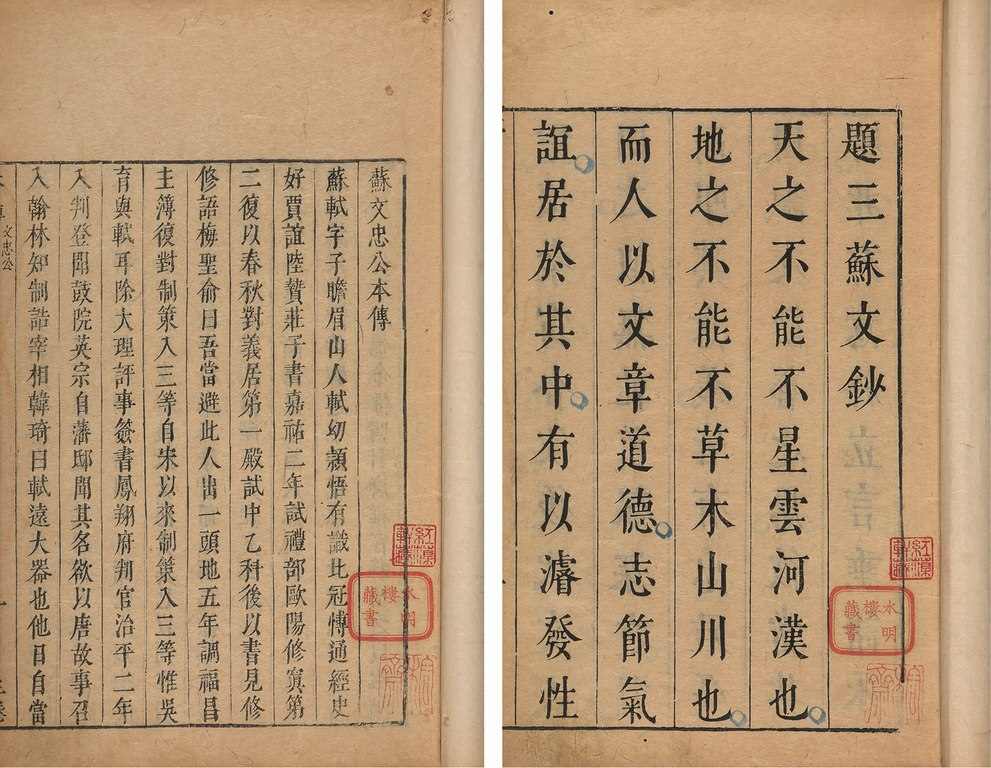 題三蘇文鈔
天之不能不星雲河漢也
地之不能不草木山川也
而人以文章道德志節氣
誼居於其中有以濬發性
水明樓藏書
蘇文忠公本傳
蘇軾字子瞻眉山人軾幼頴悟有識比冠愽通經史
好賈誼陸贄莊子書嘉祐二年試禮部歐陽修寘第
二復以春秋對義居第一殿試中乙科後以書見修
修語梅聖俞曰吾當避此人出一頭地五年調福昌
主簿復對制策入三等自宋以來制策入三等惟吳
育與軾耳除大理評事簽書鳳翔府判官治平二年
入判登聞鼓院英宗自藩邸聞其名欲以唐故事召
入翰林知制誥宰相韓琦曰軾遠大器也他日自當
文忠公
水明樓藏書